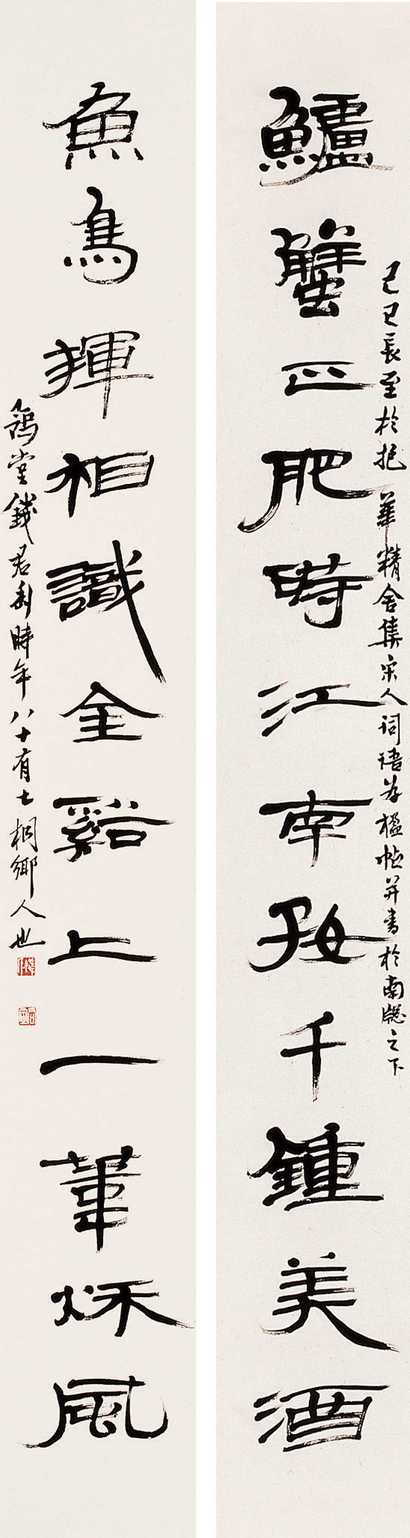 鱸蟹正肥時江南好千鍾美酒
己巳長至於抱華精舍集宋人词語為楹帖并書於南窓之下
魚鳥揮相識全谿上一葦秌風
豫堂錢君匋時年八十有七桐鄉人也